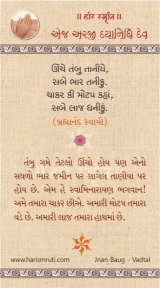 ॥ હરિ સ્મૃતિ ॥
એજ અરજી દયાનિધિ દેવ
ઊંચે તંબુ તાનીયે,
સબે ભાર તનીકું.
ચાકર કી મોટપ કહાં,
સબે લાજ ધનીકું.
(બ્રહ્માનંદ સ્વામી)
તંબુ ગમે તેટલો ઊંચો હોય પણ એનો
સઘળો ભાર જમીન પર લાગેલ તાણીયા પર
હોય છે. એમ હે સ્વામિનારાયણ ભગવાન!
અમે તમારા ચાકર છીએ. અમારી મોટપ તમારા
વડે છે. અમારી લાજ તમારા હાથમાં છે.
www.harismruti.com
Jnan Baug - Vadtal